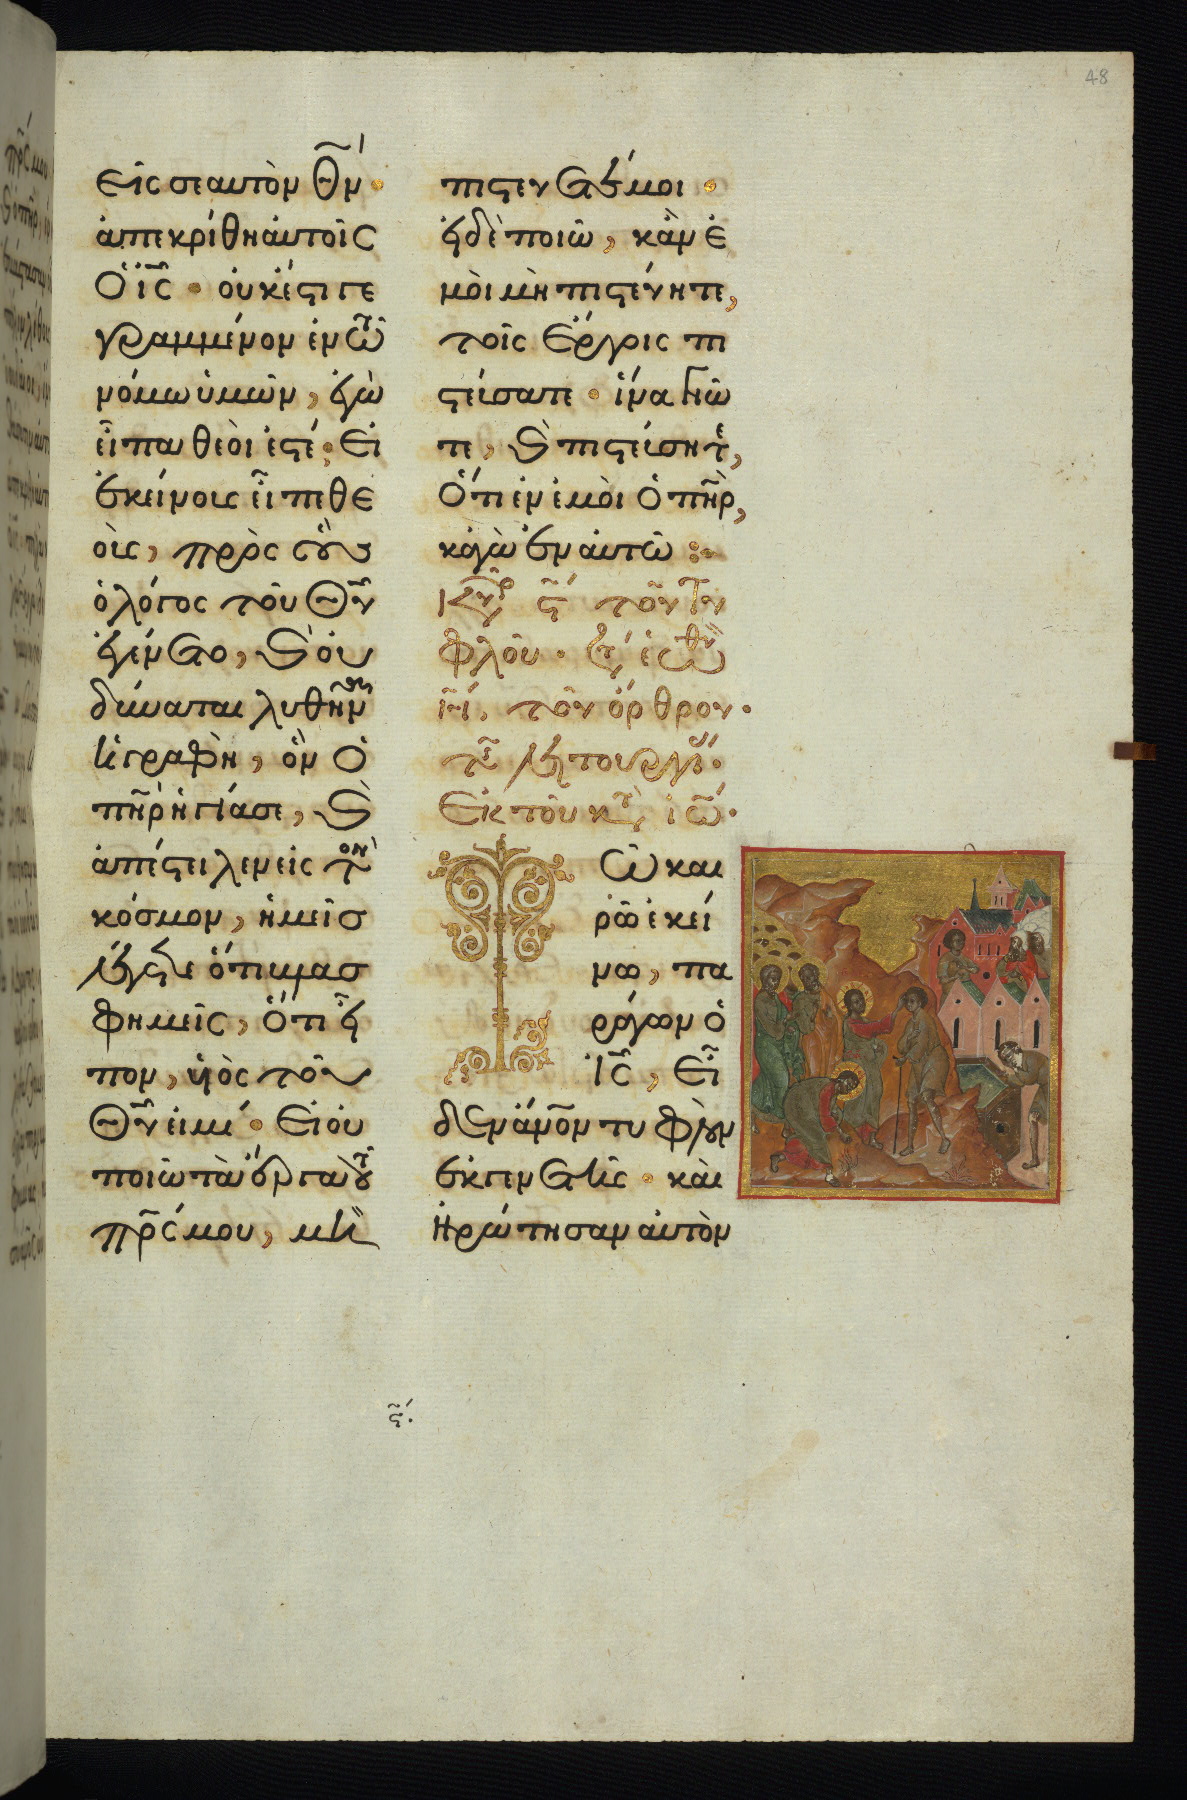 εἷς σεαυτὸν Θ̅ν·
ἀπεκρίθη αὐτοῖς
ὁ ι̅ς· οὐκ ἔστι γε
γραμμένον ἐν τῶ
νόμω ὑμῶν, ἐγὼ
εἶπα θεοί ἐστέ· εἰ
ἐκείνους εἶπε θε
οὺς, πρὸς οὓς
ὁ λόγος τοῦ Θ̅υ
ἐγένετο, καὶ οὐ
δύναται λυθῆναι
ἡ γραφὴ, ὃν ὁ
π̅η̅ρ ἡγίασε, καὶ
ἀπέστειλεν εἰς τὸν
κόσμον, ὑμεῖς
λέγετε ὅτι βλασ
φημεῖς, ὅτι εἶ
πον, υἱὸς τοῦ
Θ̅υ εἰμί· εἰ οὐ
ποιῶ τὰ ἔργα τοῦ
π̅ρ̅ς μου, μὴ
ϛ̅.
πιστεύετέ μοι·
εἰ δὲ ποιῶ, κἂν ἐ
μοὶ μὴ πιστεύητε,
τοῖς ἔργοις πι
στεύσατε· ἵνα γνῶ
τε, καὶ πιστεύσητε,
ὅτι ἐν ἐμοὶ ὁ π̅η̅ρ,
κἀγὼ ἐν αὐτῶ:
Κυρ ϛ̅ τοῦ τυ
φλοῦ· ἑωθ
η̅, τοῦ ὄρθρου·
τῆς λειτουργίας·
Ἐκ τοῦ κατὰ ἰω·
Τῶ και
ρῶ ἐκεί
νω, πα
ράγων ὁ
ι̅ς, εἶ
δεν ἄν̅ον τυφλὸν
ἐκ γενετῆς· καὶ
ἠρώτησαν αὐτὸν
48